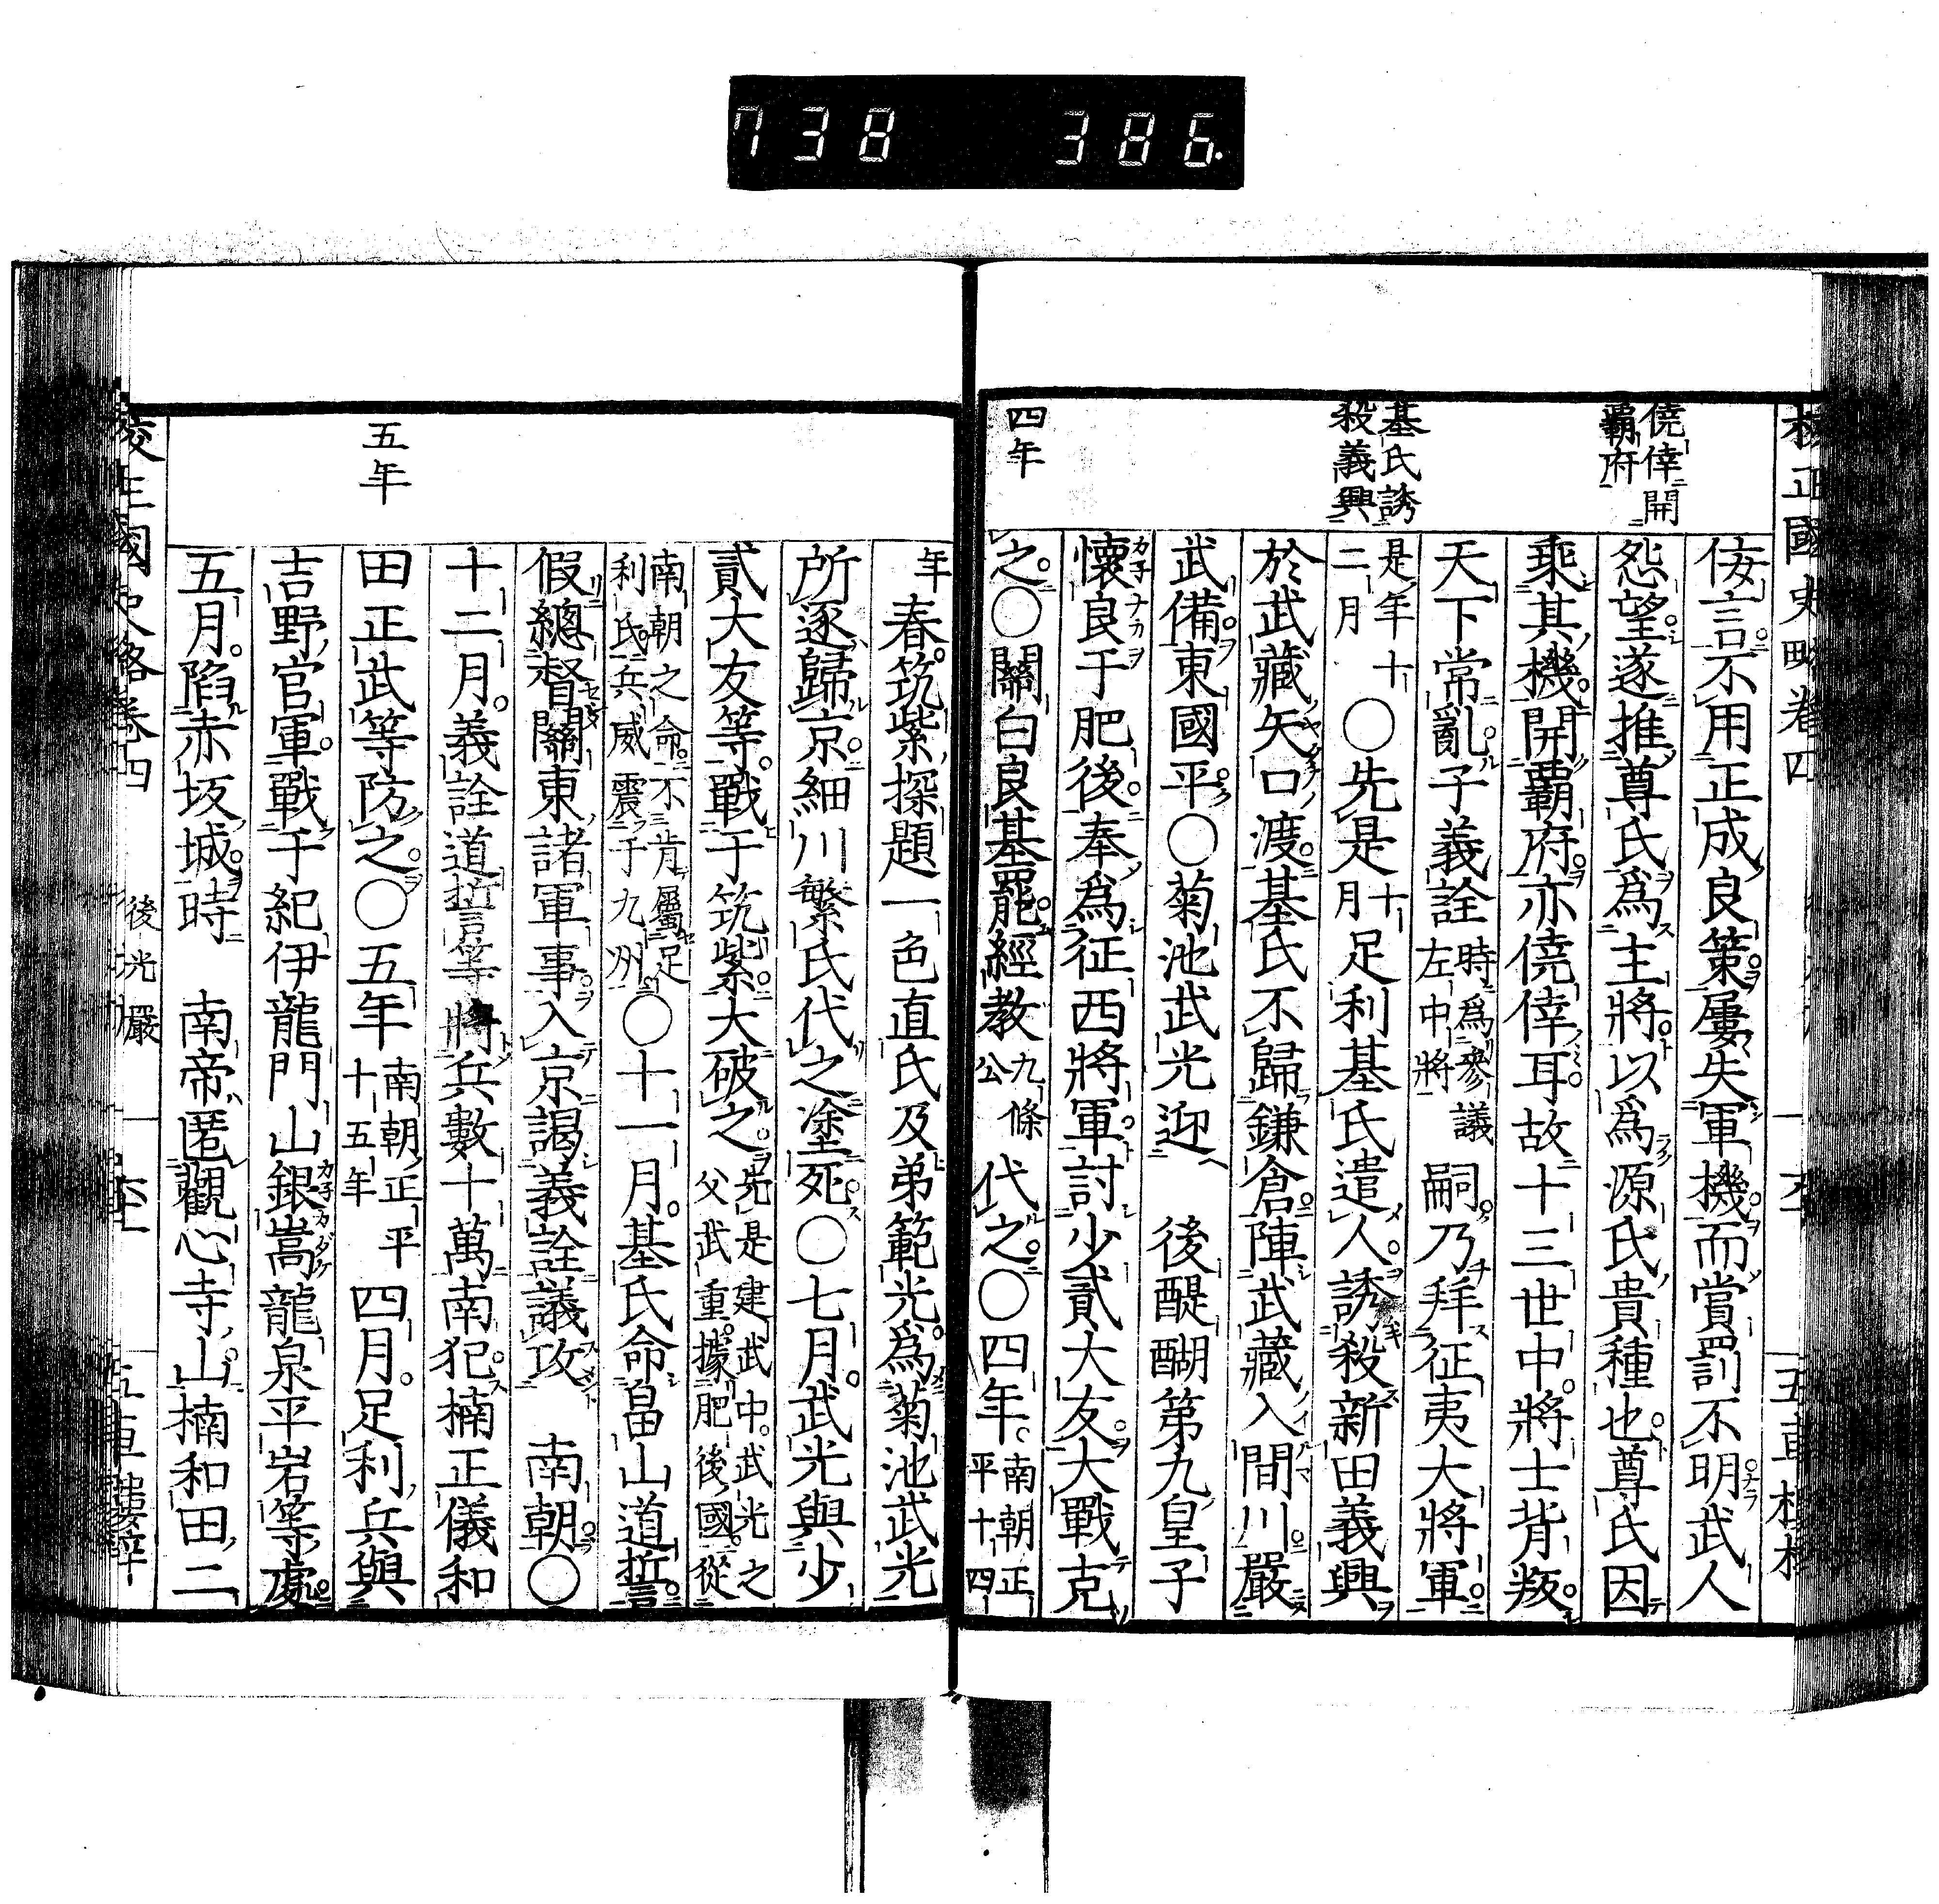 738 386.
僥倖開
覇府
基氏誘
殺義興
四年
言不用正成良策屢失軍機而賞罰不明武人
怨望遂推尊氏爲主將以爲源氏貴種也尊氏因
乘其機開覇府亦僥倖耳故十三世中將士背叛
天下常亂子義詮時爲參議左中將嗣乃拜征夷大將軍
是年十二月○先是十月足利基氏遣人誘殺新田義興
於武藏矢口渡基氏不歸鎌倉陣武藏入間川嚴
武備東國平○菊池武光迎 後醍醐第九皇子
懷良于肥後奉爲征西將軍討少貳大友大戰克
之○關白良基罷經教九條公代之○四年南朝正平十四
五年
年春筑紫探題一色直氏及弟範光爲菊池武光
所逐歸京細川繁氏代之塗死○七月武光與少
貳大友等戰于筑紫大破之先是建武中武光之父武重據肥後國從
南朝之命不肯屬足利氏兵威震于九州○十一月基氏命畠山道誓
假總督關東諸軍事入京謁義詮議攻 南朝○
十二月義詮道誓等將兵數十萬南犯楠正儀和
田正武等防之○五年南朝正平十五年四月足利兵與
吉野官軍戰于紀伊龍門山銀嵩龍泉平岩等處
五月陷赤坂城時 南帝匿觀心寺山楠和田二
後光嚴